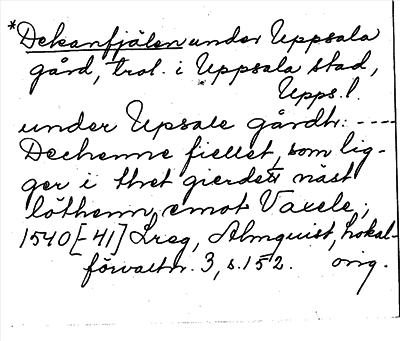 *Dekanfjälen under Uppsala
gård, trol. i Uppsala stad,
Upps. l.
under Upsale gårdh: ----
Dechenne fiellet, som lig-
ger i thet gierdett näst
löthenn, emot Vaxele,
1540[-41] Lreg, Almquist, Lokal-
förvaltn. 3, s. 152. orig.